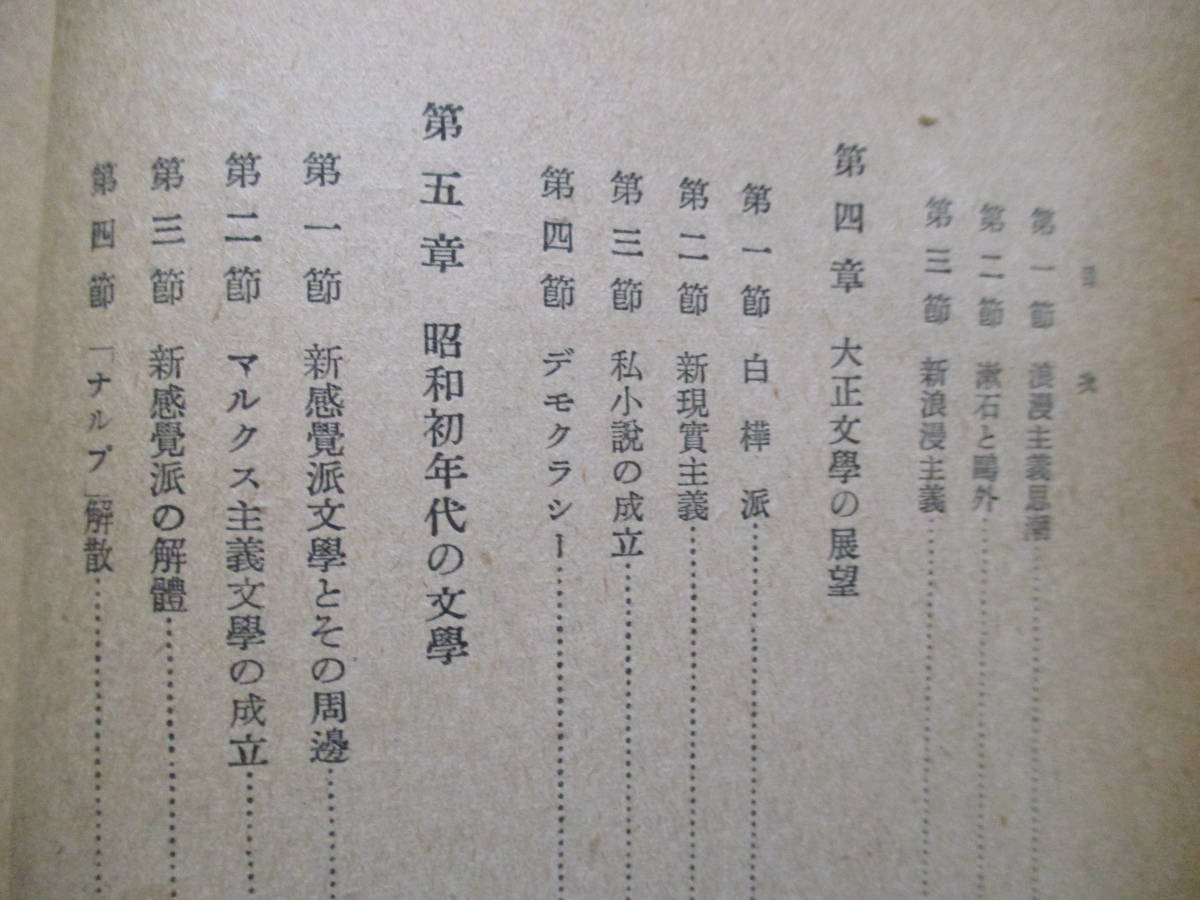 目次
第一節 浪漫主義思潮
第二節 漱石と鷗外
第三節 新浪漫主義
第四章 大正文學の展望
第一節 白樺派
第二節 新現實主義
第三節 私小說の成立
第四節 デモクラシー
第五章 昭和初年代の文學
第一節 新感覺派文學とその周邊
第二節 マルクス主義文學の成立
第三節 新感覺派の解體
第四節 「ナルプ」解散